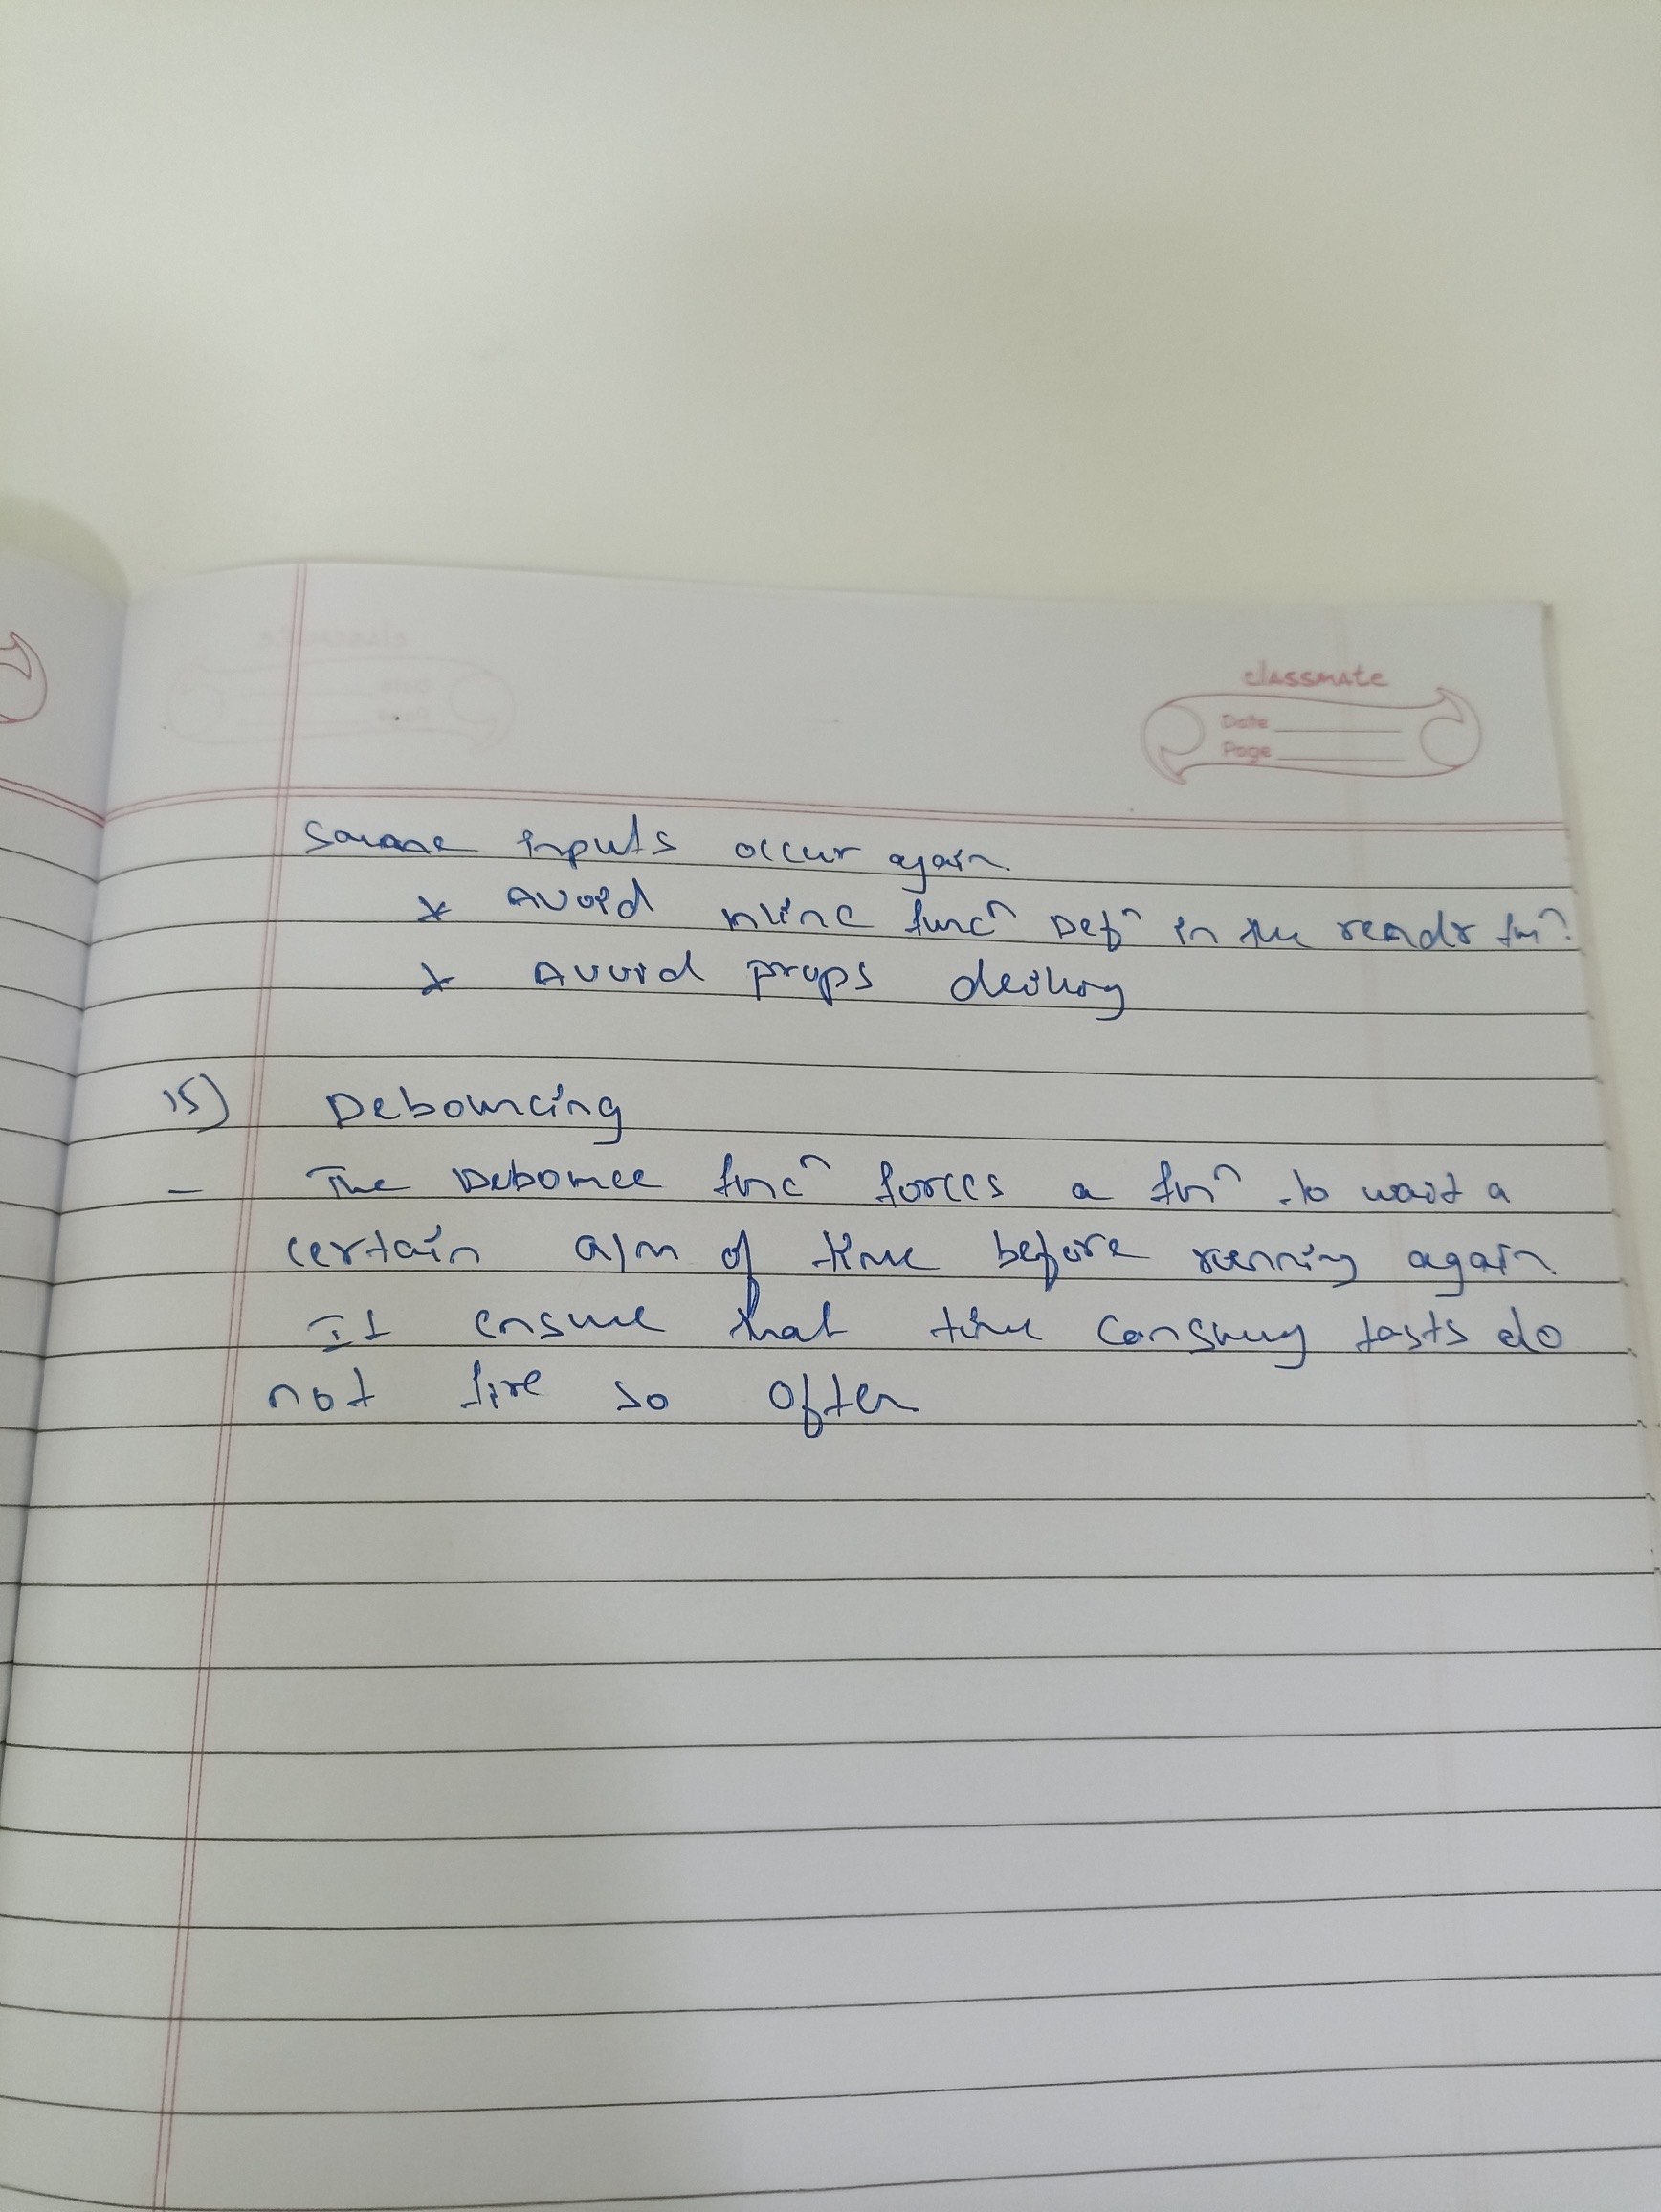 classmate
Date
Page
same inputs occur again.
* Avoid inline funcⁿ Defⁿ in the rendr funⁿ.
* Avoid props
15) Debouncing
– The Debounce funcⁿ forces a funⁿ to wait a
certain a/m of time before running again.
It ensure that time do
not fire so often